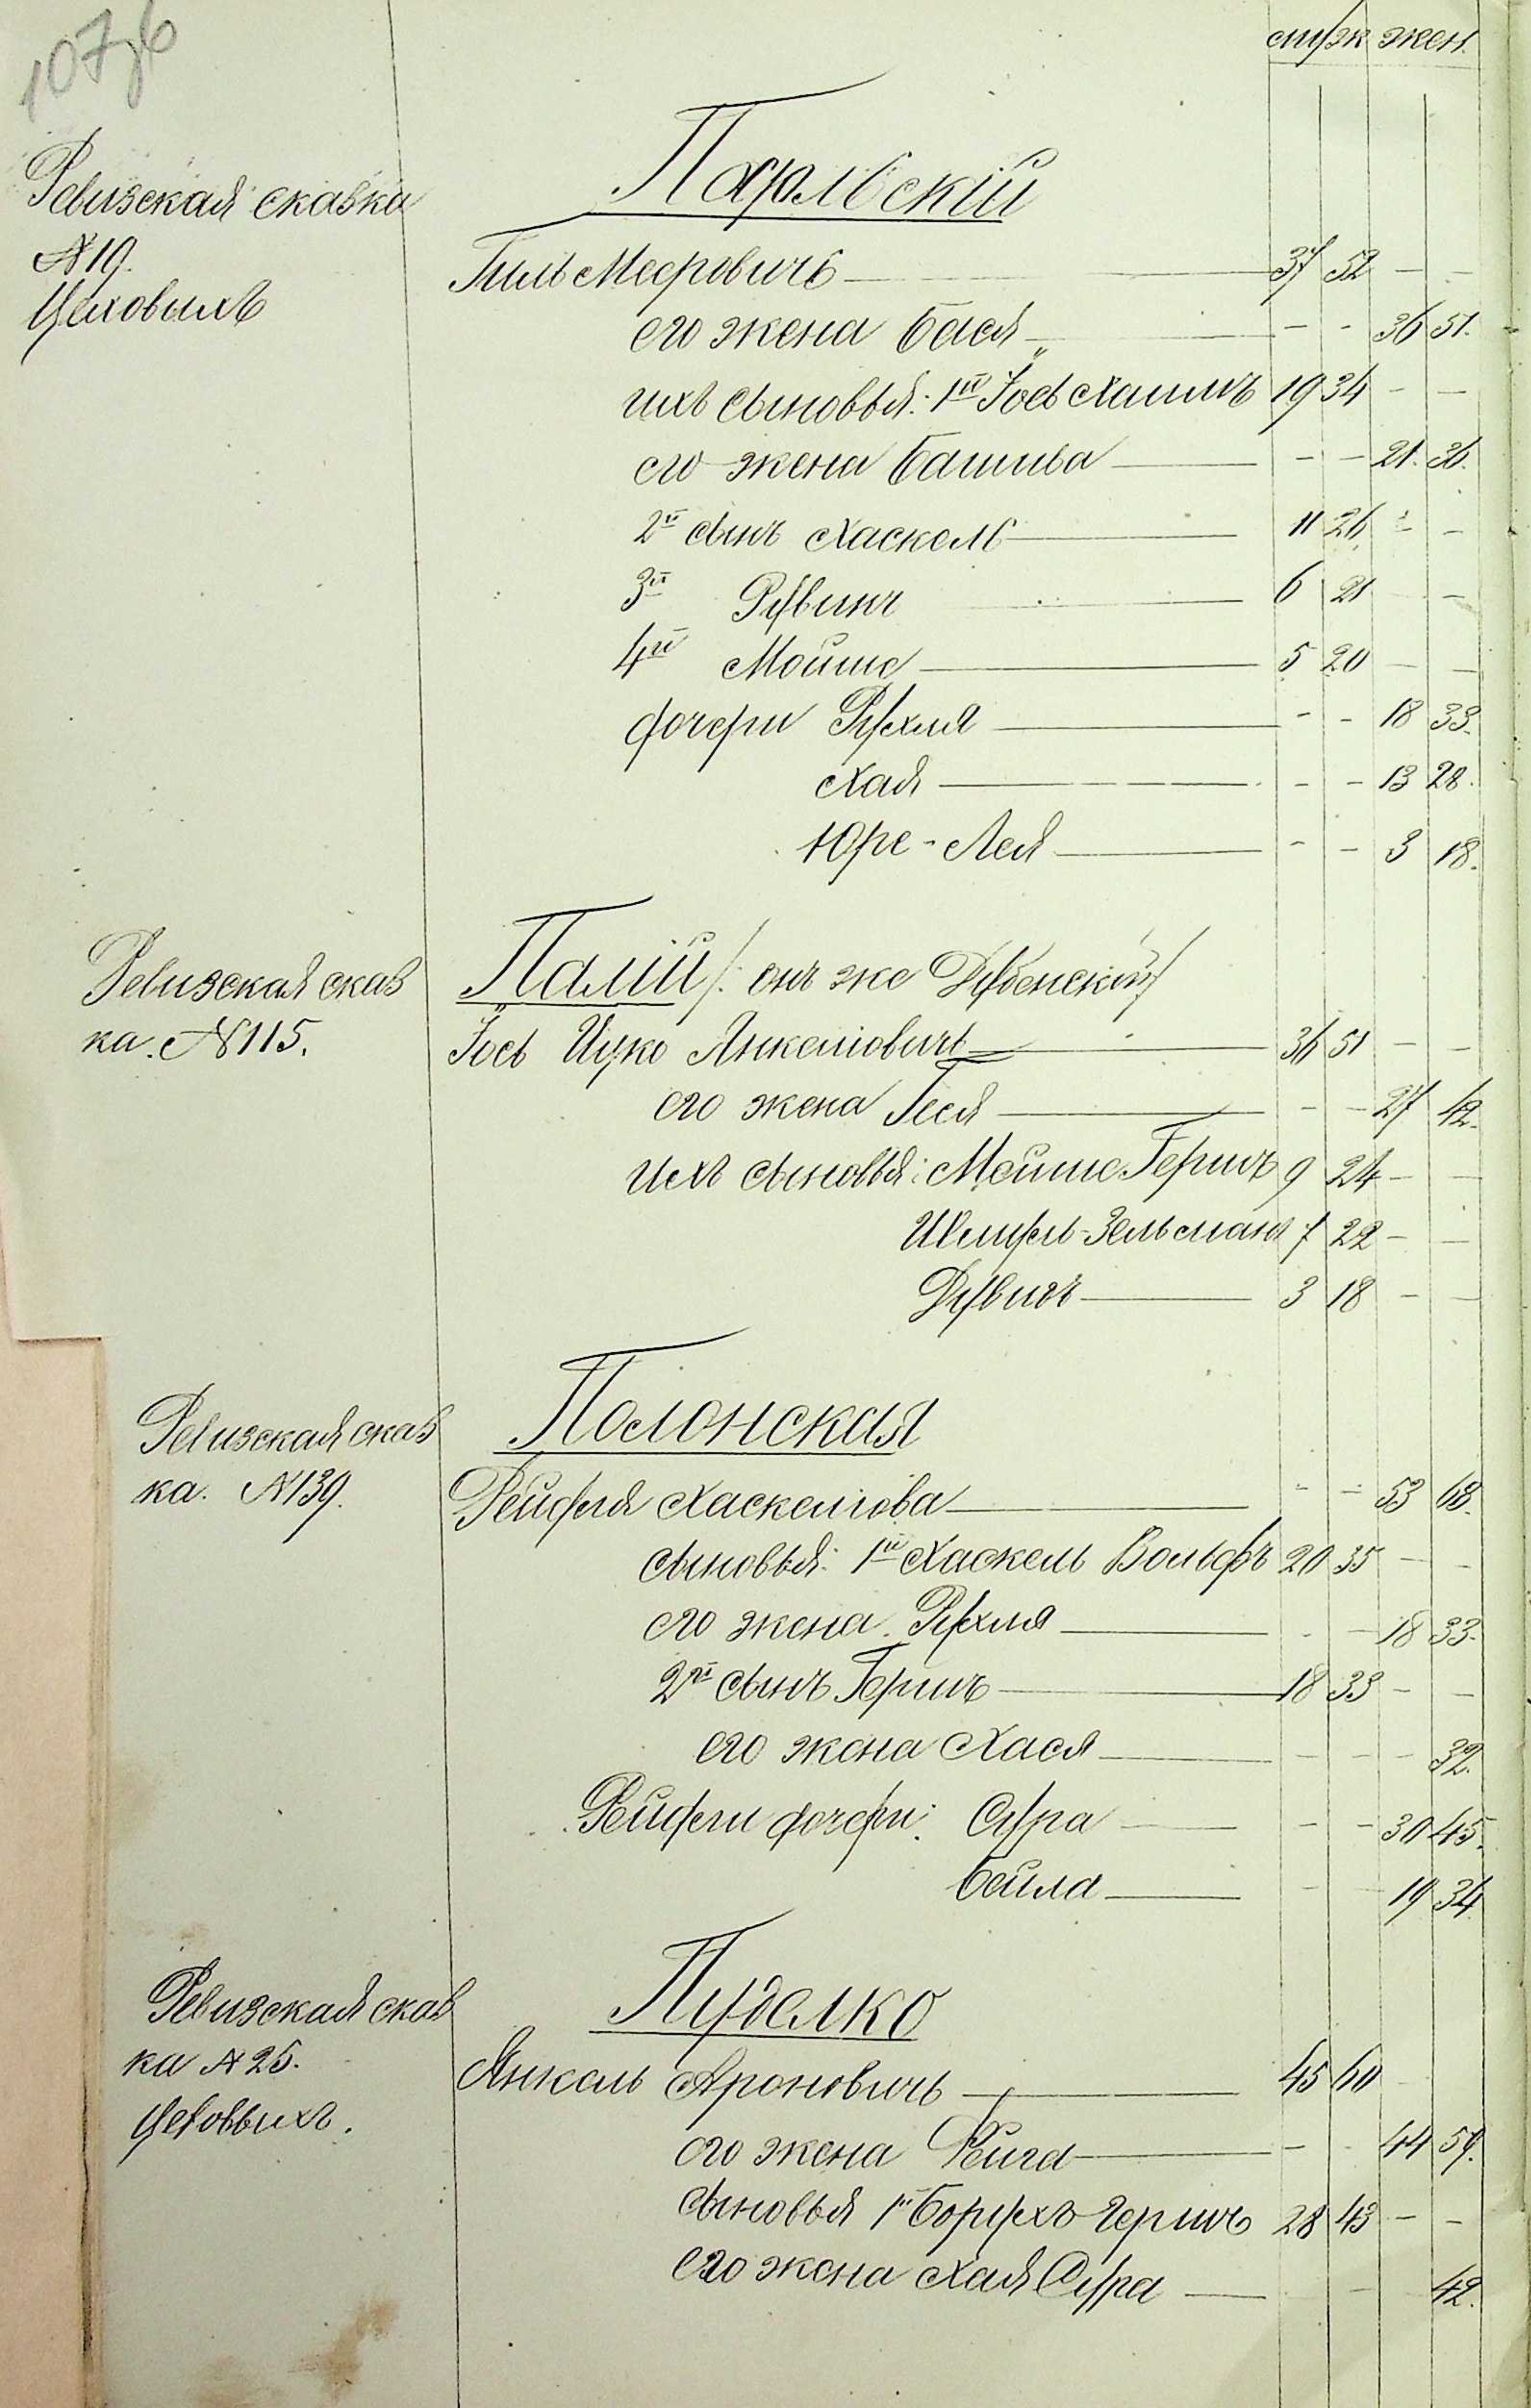 107об
муж жен.
Ревизская сказка
№19.
Цеховыхъ
Парльскій
Гиль Мееровичъ 37 52 - -
его жена Бася - - 36 51.
ихъ сыновья: 1й Іось Хаимъ 19 34 - -
его жена Башива - - 21. 36.
2й сынъ Хаскель 11 26 - -
3й Рувинъ 6 21 - -
4й Мойше 5 20 - -
дочери Рухля - - 18 33.
Хая - - 13 28.
Юре-Лея - - 3 18.
Ревизская сказ
ка. №115.
Палій /: онъ же Дубенскій /
Іось Ицко Янкелiовичъ 36 51 - -
его жена Геся - - 27 42.
ихъ сыновья: Мойше Гершъ 9 24 - -
Шмуль-Зельманъ 7 22 - -
Рувинъ 3 18 - -
Ревизская сказ
ка. №139.
Полонская
Рейфля Хаскелiова - - 53 68.
сыновья: 1й Хаскель Вольфъ 20 35 - -
его жена Рухля - - 18 33.
2й сынъ Гершъ 18 33 - -
его жена Хася - - - 32.
Рейфли дочери: Сура - - 30 45.
Бейла - - 19 34
Ревизская сказ
ка №25.
Цеховыхъ.
Пуделко
Янкель Ароновичъ 45 60 -
его жена Рейза - - 44 59.
сыновья 1й Борухъ Гершъ 28 43 - -
его жена Хая Сура - - 42.